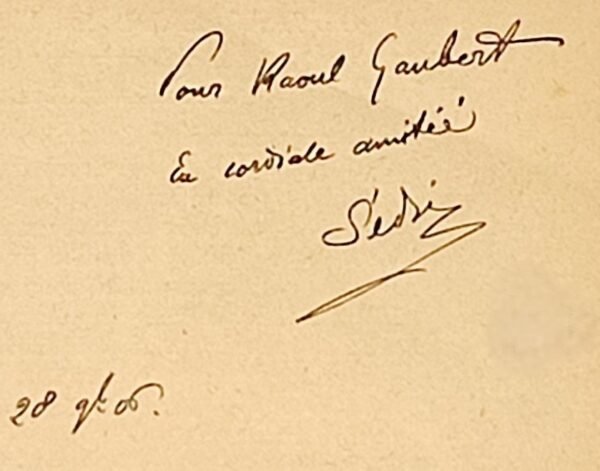 Pour Raoul Gaubert
En cordiale amitié
Sédir
28 9bre 06.